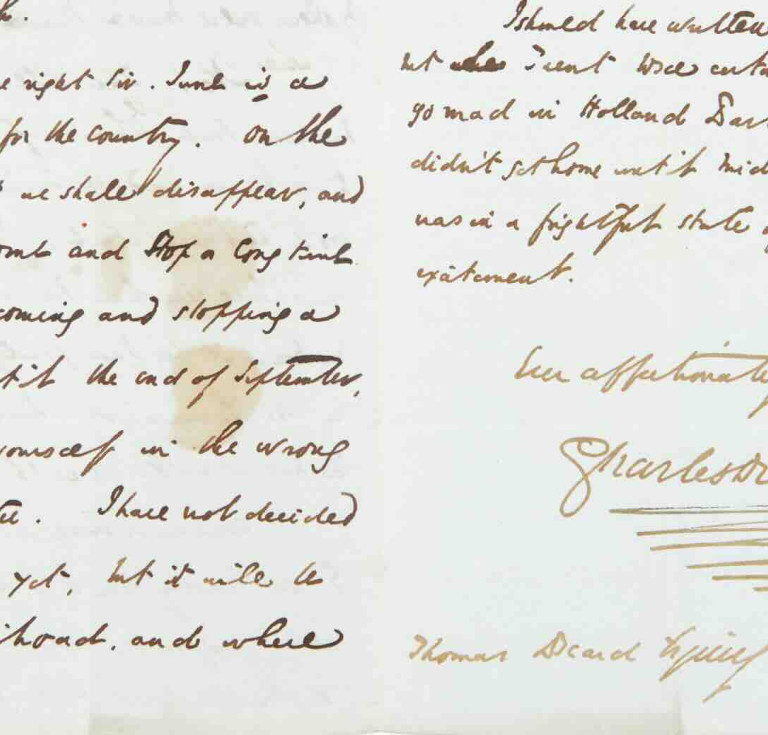 right Sir. June is a
for the country. On the
we shall disappear, and
and stop a long time
coming and stopping a
the end of September,
yourself in the wrong
I have not decided
yet, but it will be
and where
I should have written
but I went
go mad in Holland
didn't get home until mid
was in a frightful state
excitement.
Ever affectionately
Charles
Thomas Beard Esquire